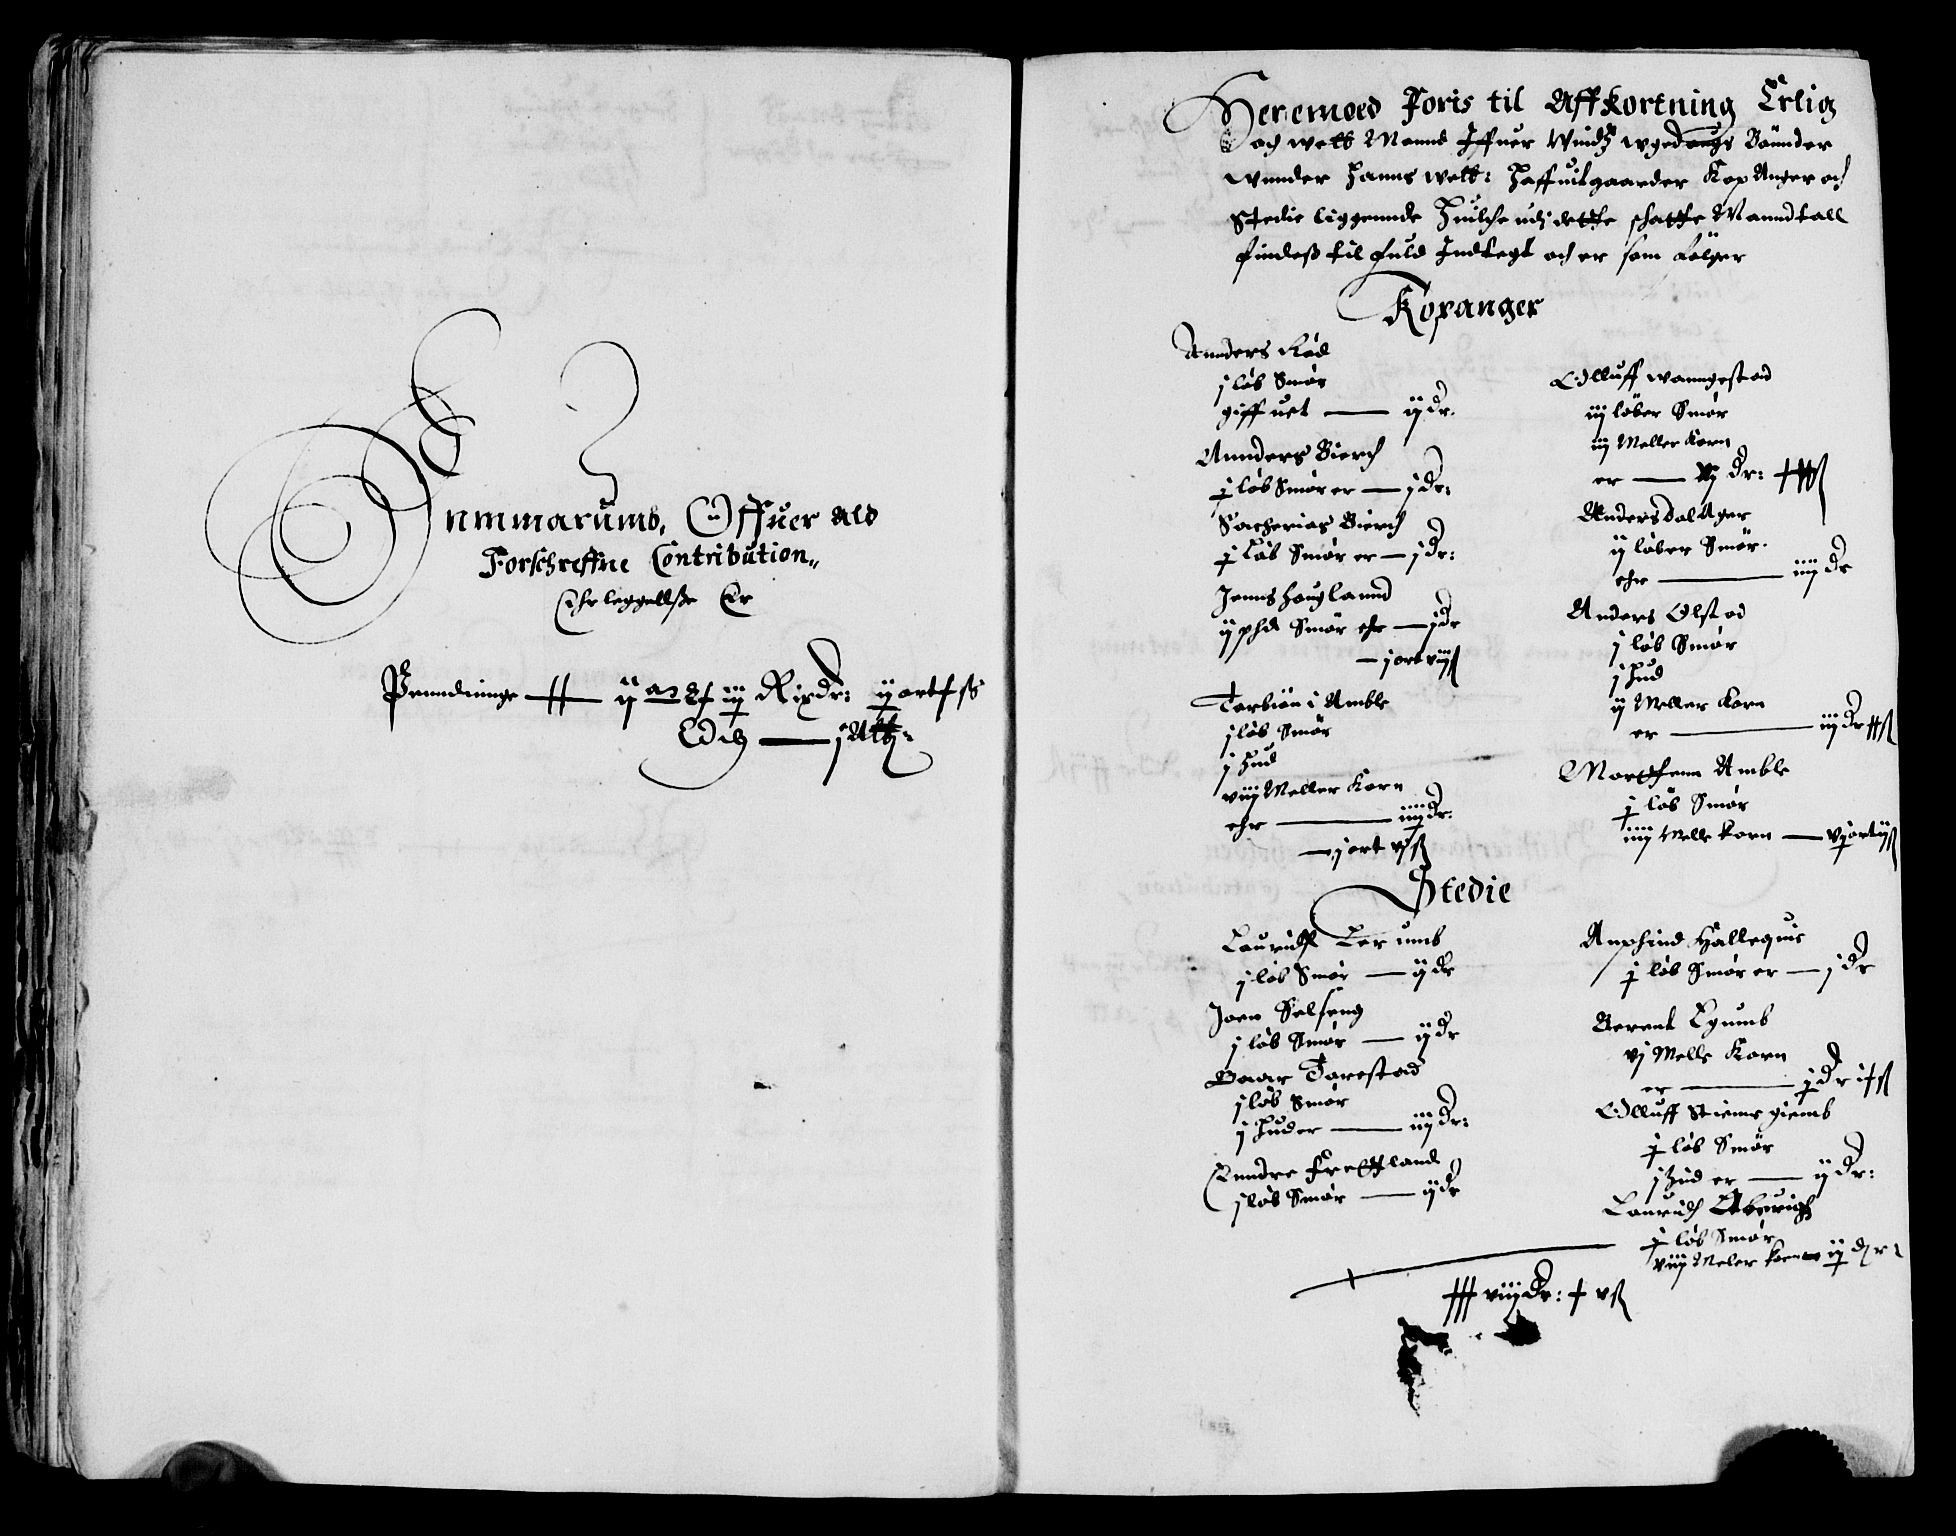 Summarumb, Offuer Ald
Forschreffne Contribution,,
Ehrleggellße Er
Penndinnge
Heremoed Foris til Affkortning Erlig
och welb Mannd Iffuer Windz wgedaugs Bönnder
wnnder Hanns welb: Haffuitgaarder Kopanger och
Stedie liggennde Huilche udj dette skatte Manndtall
findeß til fuld Indtegt och er som følger
Kopanger
Annders Rød
j løb Smør
giffuet — ij dr.
Annders Bierch
j løb Smør er — j dr:
Sacherias Bierch
j Løb Smør er — j dr:
Jenns Hauglannd
ij phd Smør ehr — j dr
— j ort viij ß
Torbiön i Amble
j løb Smør
j Hud
viij Meller Korn
ehr — iiij dr:
— j ort vj ß
Olluff wanngestad
iij løber Smør
iij Meller Korn
er — vj dr:
Anders dalAger
ij løber Smør.
ehr — iiij dr
Anders Olstad
j løb Smør
j Hud
ij Meller Korn
er — iij dr
Morthenn Amble
j løb Smør
iiij Melle Korn — vj ort ij ß
Stedie
Lauridß Lerumb
j løb Smør — ij dr
Joen Selseng
j løb Smør — ij dr
Baar Torestad
j løb Smør
j Hud er — iij dr:
Enndre Frettland
j løb Smør — ij dr
Anphind Hallequis
j løb Smør er — j dr
Berent Lgumb
vj Melle Korn
er — j dr
Olluff Stiemsgiemb
j løb Smør
j Hud er — ij dr:
Lauridß
j løb Smør
viij Meler Korn — ij dr:
viij dr: v ß